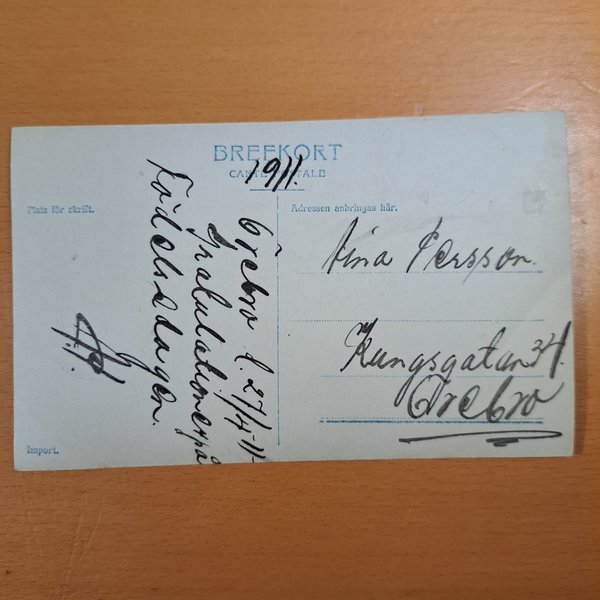 BREFKORT
CARTE POSTALE
1911.
Plats för skrift.
Adressen anbringas här.
Örebro d. 27/4-11-
Gratulationer på
Födelsedagen.
Import.
Persson.
Kungsgatan 34.
Örebro